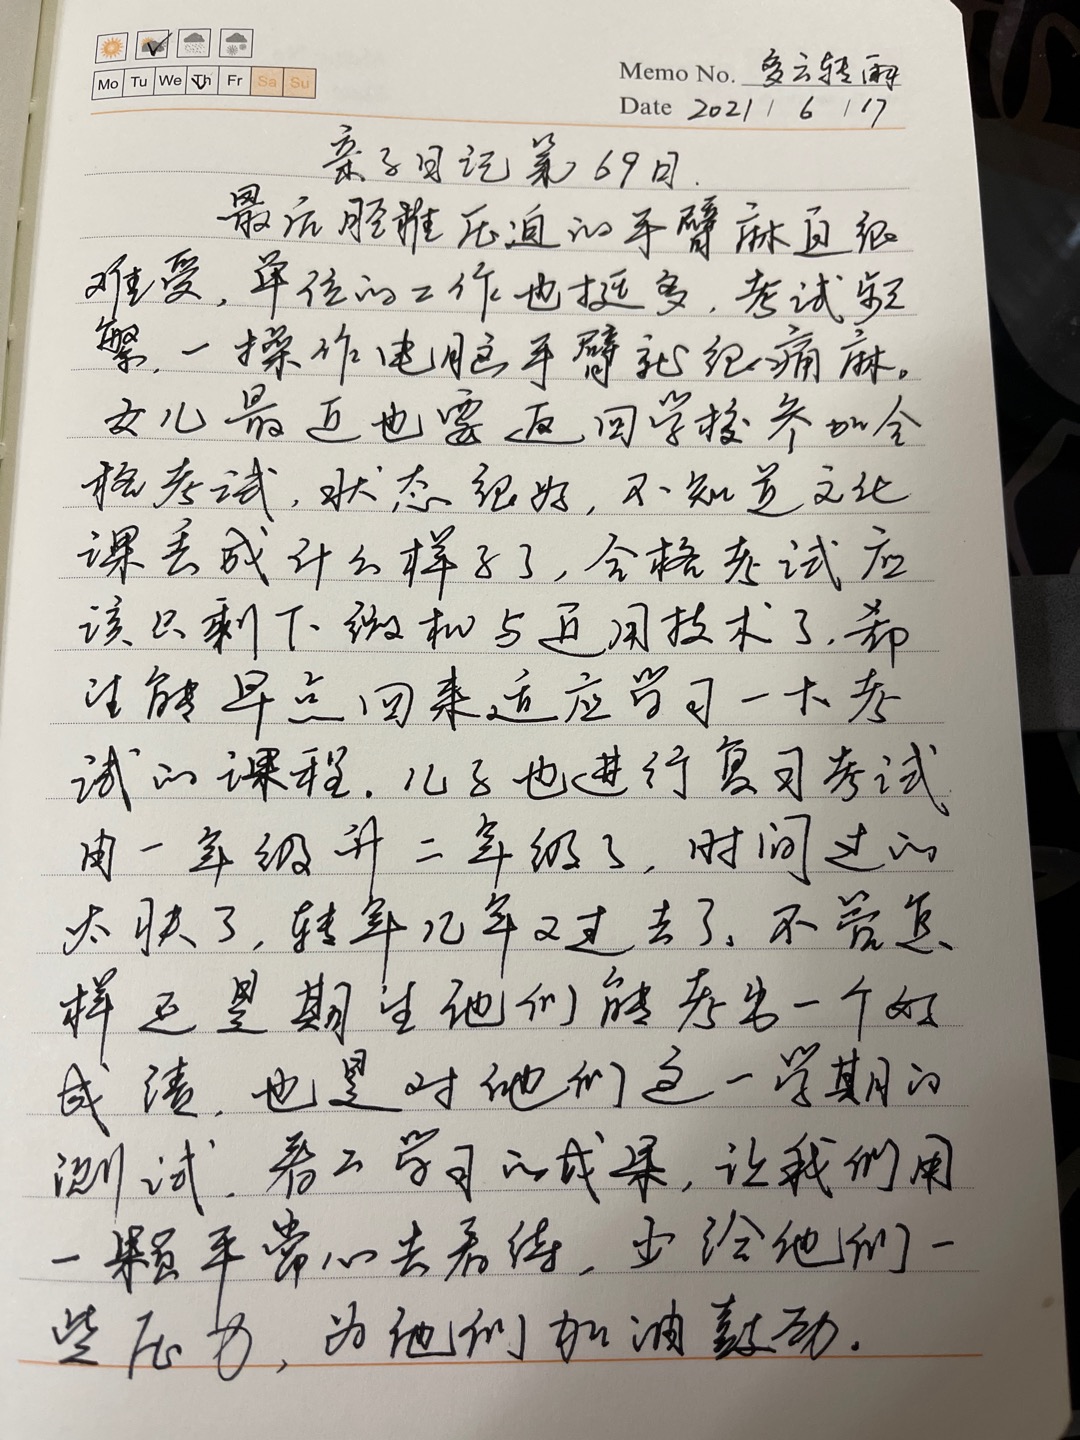 Mo Tu We Th Fr Sa Su
Memo No. 多云转雨
Date 2021 / 6 / 17
亲子日记第69日.
最后胫椎压迫的手臂麻直很
难受，单位的工作也挺多，考试频
繁，一操作电脑手臂就很痛麻。
女儿最近也要返回学校参加合
格考试，状态很好，不知道文化
课丢成什么样子了，合格考试应
该只剩下微机与通用技术了，希
望能早点回来适应学习一下考
试的课程。儿子也进行复习考试
由一年级升二年级了，时间过的
太快了，转年几年又过去了。不管怎
样还是期望他们能考出一个好
成绩，也是对他们这一学期的
测试，看看学习的成果，让我们用
一颗平常心去看待，少给他们一
些压力，为他们加油鼓劲。